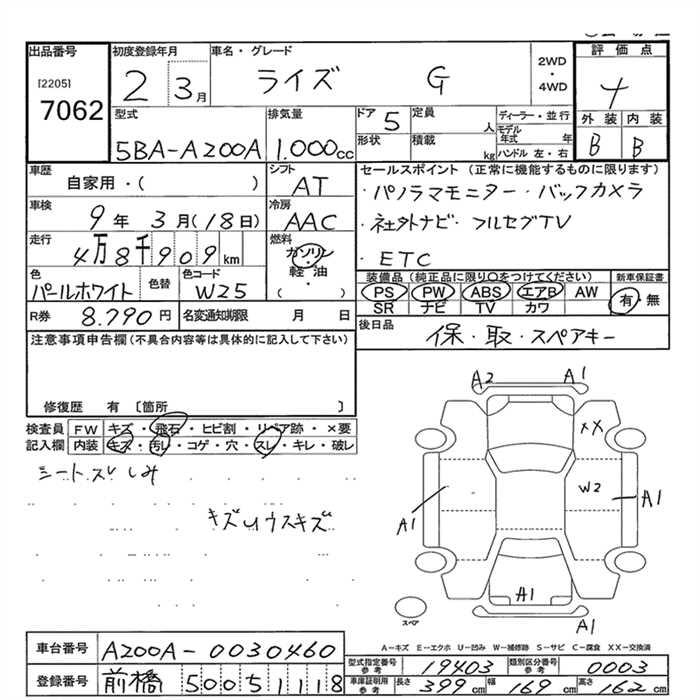 出品番号
[2205]
7062
初度登録年月
2 3月
車名・グレード
ライズ G
2WD
・
4WD
評価点
4
外装 内装
B B
型式
5BA-A200A
排気量
1.000cc
ドア 5
形状
定員 人
積載 kg
ディーラー・並行
モデル年式 年
ハンドル 左・右
車歴
自家用・( )
シフト
AT
車検
9年 3月(18日)
冷房
AAC
走行
4万8千909km
燃料
ガソリン
・
軽油
( ・ )
色
パールホワイト
色替
色コード
W25
R券 8.790円
名変通知期限 月 日
セールスポイント(正常に機能するものに限ります)
・パノラマモニター・バックカメラ
・社外ナビ・フルセグTV
・ETC
装備品(純正品に限り○をつけてください)
PS PW ABS エアB AW
SR ナビ TV カワ
新車保証書
有・無
後日品
保・取・スペアキー
注意事項申告欄(不具合内容等は具体的に記入して下さい)
修復歴 有 〔箇所 〕
検査員記入欄
FW キズ・飛石・ヒビ割・リペア跡・×要
内装 キズ・汚レ・コゲ・穴・スレ・キレ・破レ
シートスレ しみ
キズUウスキズ
A2 A1
XX
W2
A1
A1
A1
スペア
A－キズ E－エクボ U－凹み W－補修跡 S－サビ C－腐食 XX－交換済
車台番号 A200A-0030460
登録番号 前橋 500 5 1118
型式指定番号 参考 19403
類別区分番号 参考 0003
車庫証明用 参考 長さ 399cm 幅 169cm 高さ 162cm